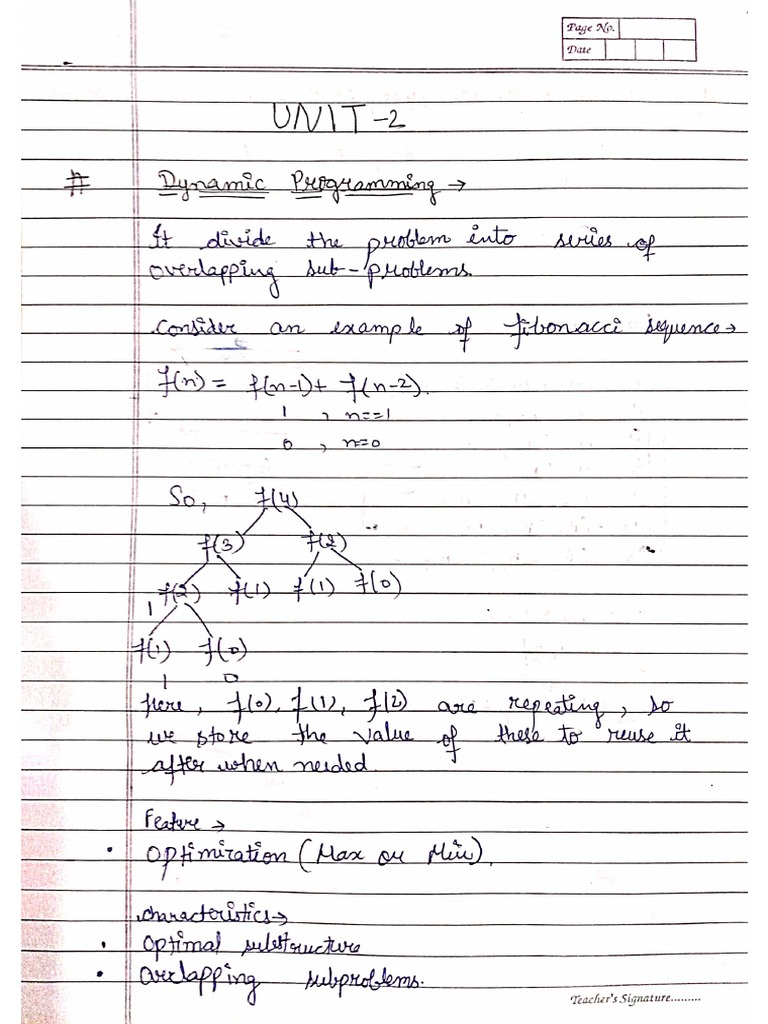 Page No.
Date
UNIT-2
# Dynamic Programming →
It divide the problem into series of
overlapping sub-problems.
Consider an example of fibonacci sequence →
f(n) = f(n-1) + f(n-2).
1 , n==1
0 , n=0
So, f(4)
f(3) f(2)
f(2) f(1) f(1) f(0)
1
f(1) f(0)
1 0
here, f(0), f(1), f(2) are repeating, so
we store the value of these to reuse it
after when needed.
Feature →
• Optimization (Max or Min).
characteristics →
• Optimal substructure
• Overlapping subproblems.
Teacher's Signature.........